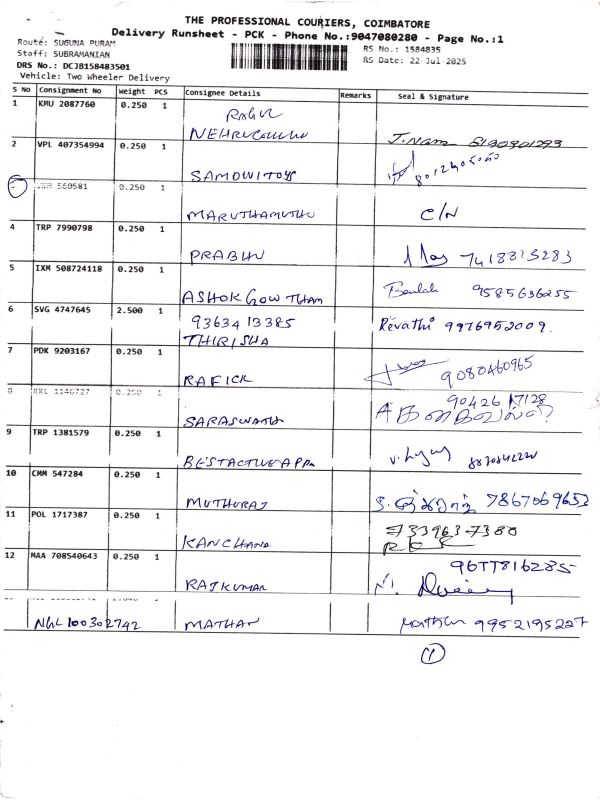 THE PROFESSIONAL COURIERS, COIMBATORE
Delivery Runsheet - PCK - Phone No.:9047080280 - Page No.:1
Route: SUGUNA PURAM
Staff: SUBRAMANIAN
DRS No.: DCJB158483501
Vehicle: Two Wheeler Delivery
RS No.: 1584835
RS Date: 22-Jul-2025
S No Consignment No Weight PCS Consignee Details Remarks Seal & Signature
1 KMU 2087760 0.250 1
RAGUL
2 VPL 407354994 0.250 1
SAMDWITOYS
560581 0.250 1
MARUTHAMUTHU C/N
4 TRP 7990798 0.250 1
PRABHU 7418815283
5 IXM 508724118 0.250 1
ASHOK GOWTHAM 9585636255
6 SVG 4747645 2.500 1
9363413385 Revathi 9976952009.
THIRISHA
7 PDK 9203167 0.250 1
RAFICK 9080460965
8 KKL 1146727 0.250 1
90426 17128
SARASWATHI
9 TRP 1381579 0.250 1
BESTACTIVEAPPA
10 CMM 547284 0.250 1
MUTHURAJ 7867069653
11 POL 1717387 0.250 1
7339637380
KANCHANA
12 MAA 708540643 0.250 1
9677816285
RAJKUMAR
NGL 100302742 MATHAN Mathan 9952195227
1